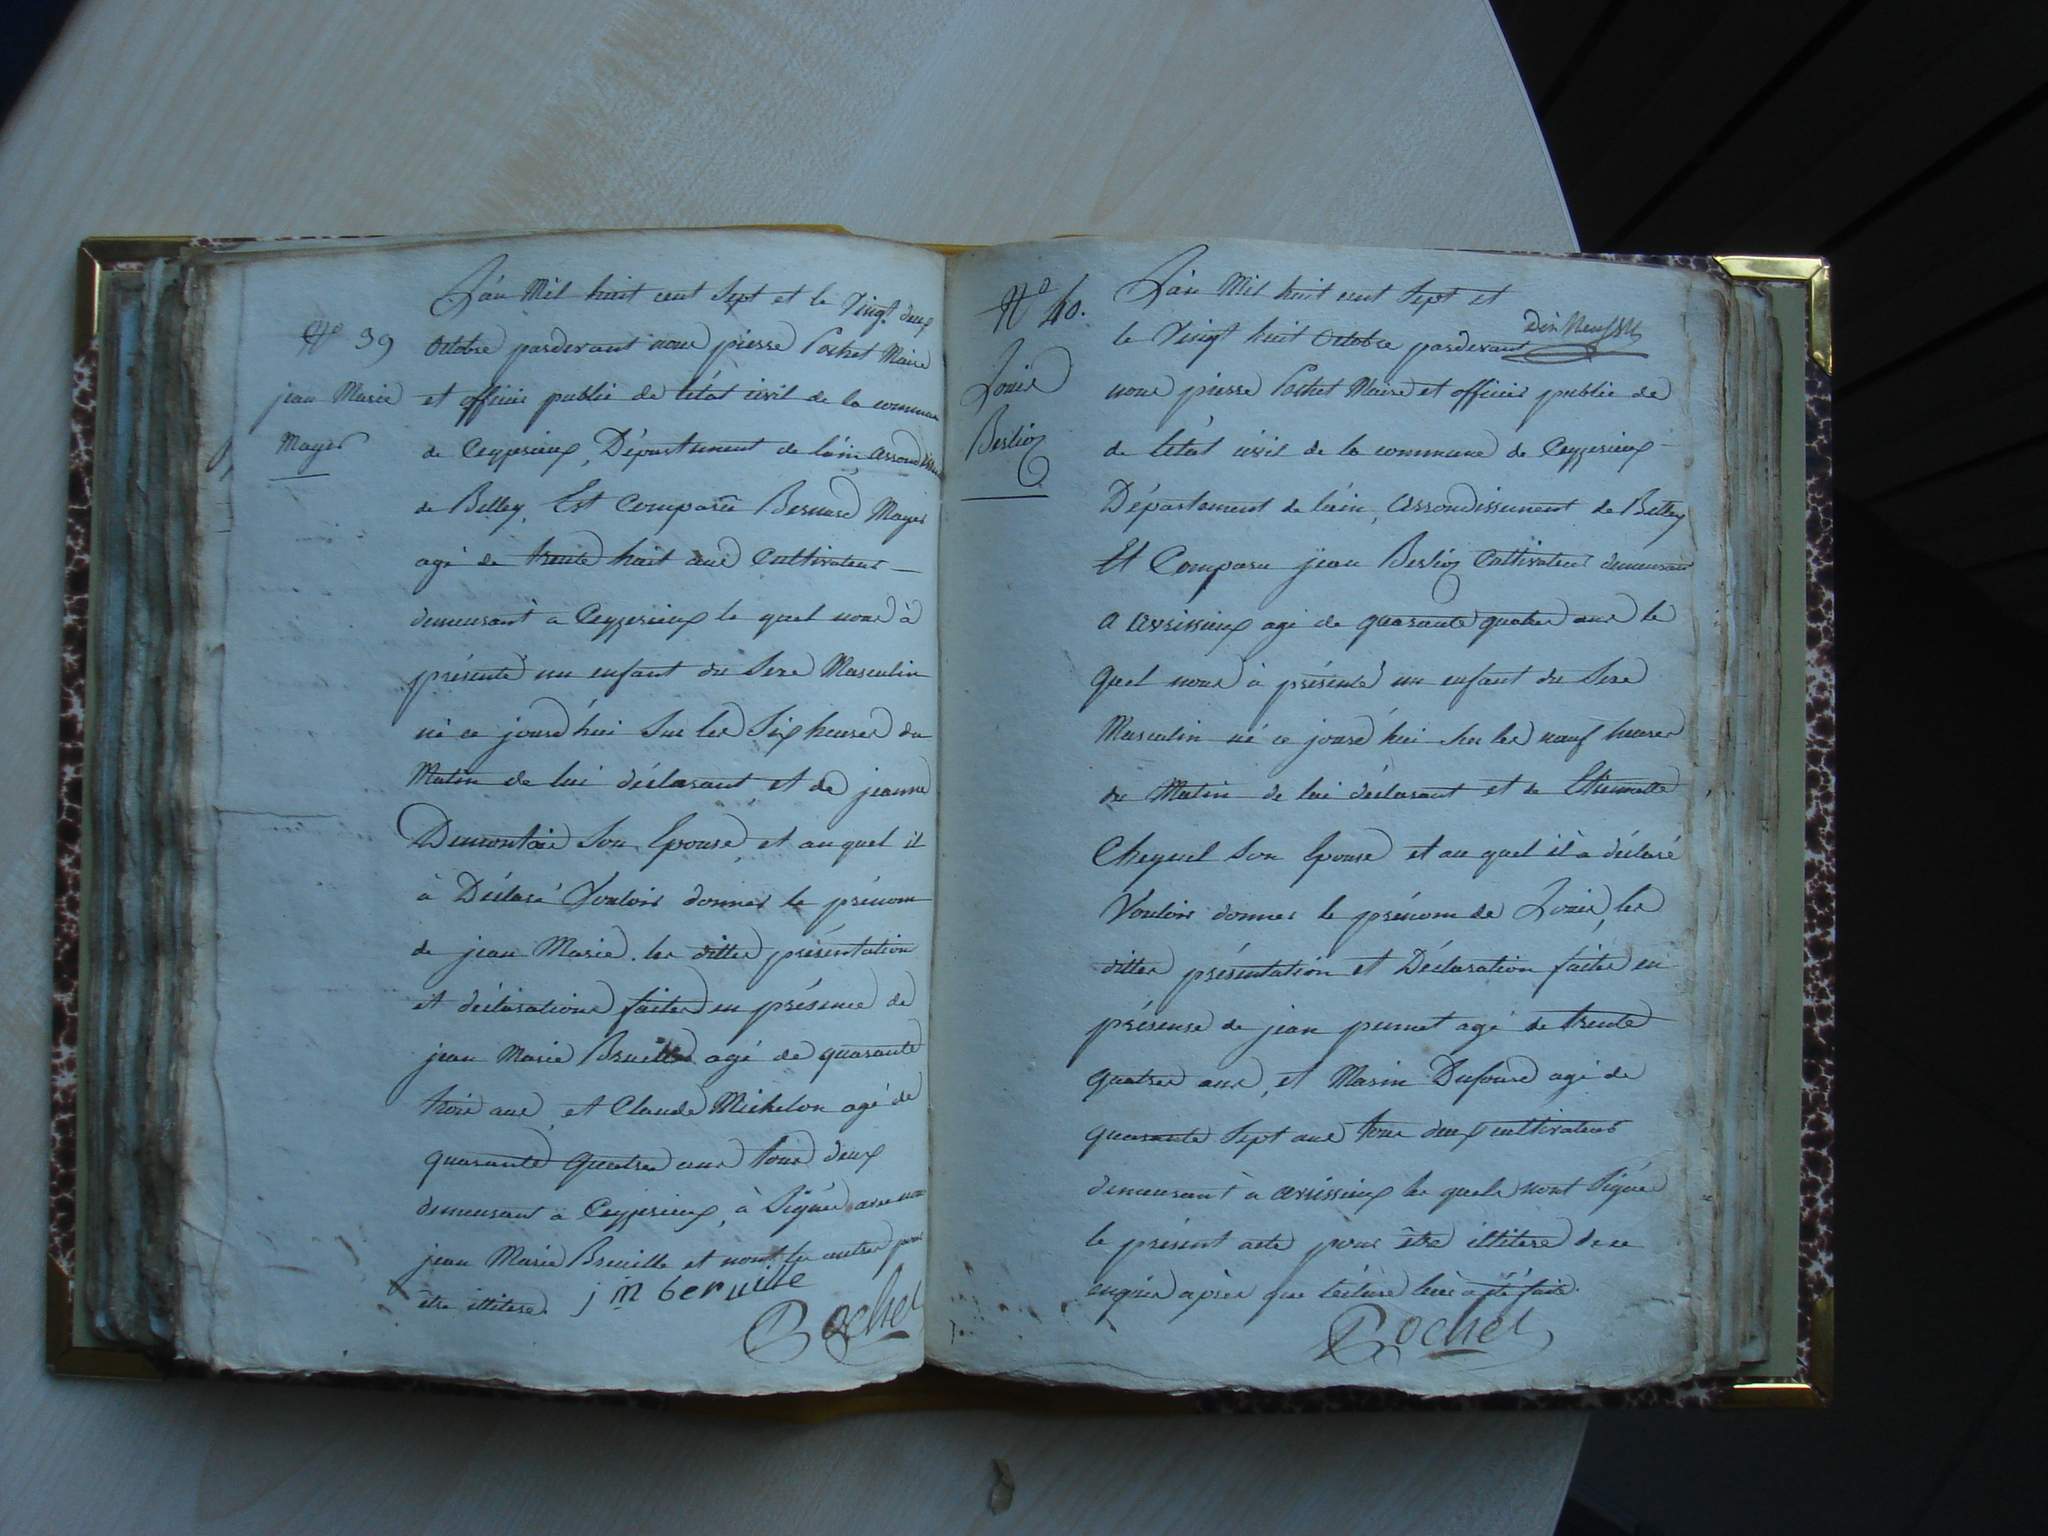 N° 39
jean Marie
Mayer
L'an Mil huit cent Sept et le Vingt deux
Octobre pardevant nous pierre Pochet Maire
et officier public de l'état civil de la commune
de Ceyzerieux, Département de l'ain, arrondissem
de Belley, Est Comparû Bernard Mayer
agé de trente huit ans Cultivateur
demeurant a Ceyzerieux le quel nous à
présenté un enfant du Sexe Masculin
né ce jourd'hui Sur les Six heures du
Matin de lui déclarant et de jeanne
Demontoir Son Epouse, et au quel il
à Déclaré Vouloir donner le prénom
de jean Marie. les dittes présentation
et déclarations faites en présence de
jean Marie agé de quarante
trois ans, et Claude Michelon agé de
quarante quatre ans tous deux
demeurant a Ceyzerieux, à Signé avec nous
jean Marie Breuille et non les autres pour
être illitere. j m beruille
Pochet
N° 40.
Louis
Berlioz
L'an Mil huit cent Sept et
le Vingt huit Octobre pardevant
nous pierre Pochet Maire et officier public de
de l'état civil de la commune de Ceyzerieux
Département de l'ain, arrondissement de Belley
Et Comparu jean Berlioz Cultivateur demeurant
a avrissieux agé de quarante quatre ans le
quel nous à présenté un enfant du Sexe
Masculin né ce jourd'hui Sur les neuf heures
du Matin de lui déclarant et de Etiennette
Cheynel Son Epouse et au quel il à déclaré
Vouloir donner le prénom de Louis, les
dittes présentation et Déclaration faites en
présense de jean pernet agé de trente
quatre ans, et Marin Dufour agé de
quarante Sept ans tous deux cultivateurs
demeurant à avrissieux les quels n'ont Signé
le présent acte pour être illitere de ce
enquis après que lecture leur a été faite.
Pochet